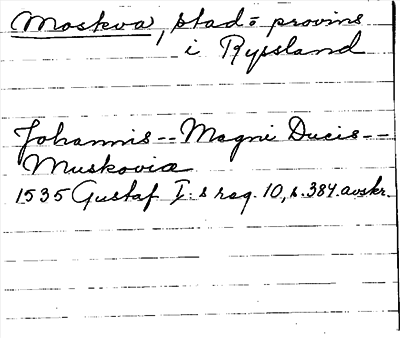 Moskva, stad = provins
i Ryssland
Johannis -- Magni Ducis --
Muskovia
1535 Gustaf I:s reg. 10, s. 384. avskr.